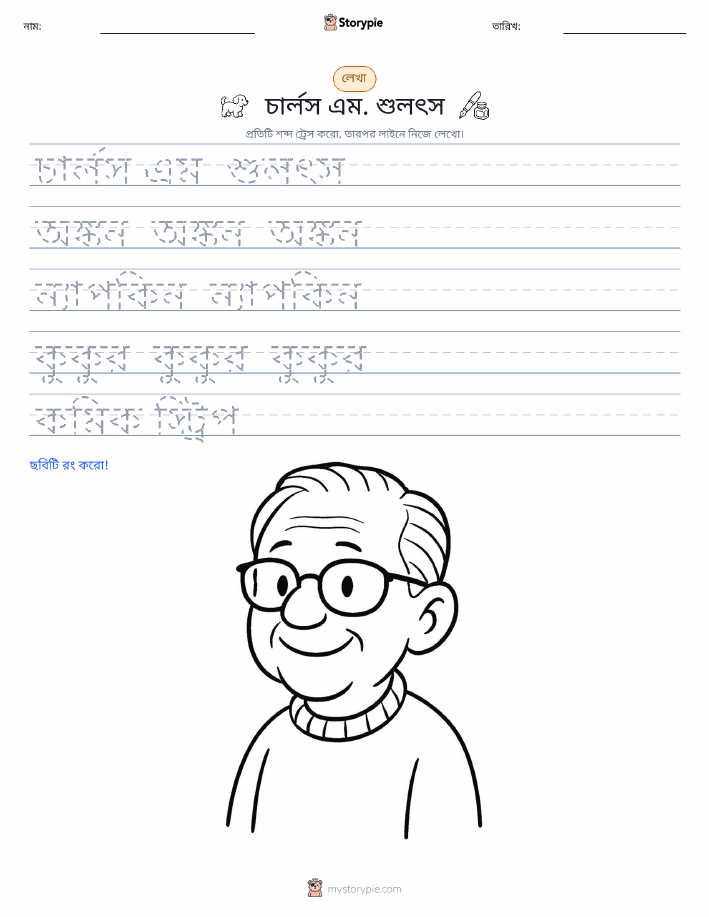 নাম:
Storypie
তারিখ:
লেখা
চার্লস এম. শুলৎস
প্রতিটি শব্দ ট্রেস করো, তারপর লাইনে নিজে লেখো।
চার্লস এম শুলৎস
অঙ্কন অঙ্কন অঙ্কন
ন্যাপকিন ন্যাপকিন
কুকুর কুকুর কুকুর
কমিক স্ট্রিপ
ছবিটি রং করো!
mystorypie.com